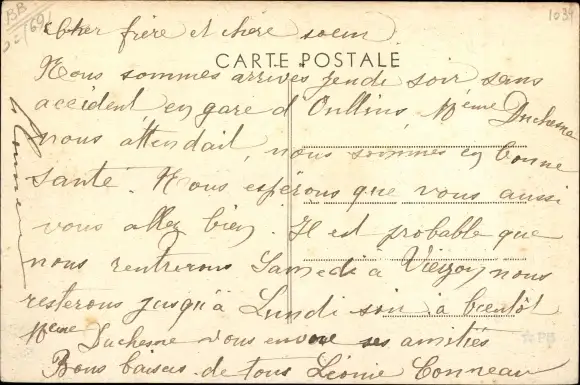 BB
(69)
1034
Cher frère et chère soeur
CARTE POSTALE
Nous sommes arrivés jeudi soir sans
accident, en gare d'Oullins, Mème Duchesne
nous attendait, nous sommes en bonne
santé. Nous espérons que vous aussi
vous allez bien. Il est probable que
nous rentrerons Samedi à Vierzon nous
resterons jusqu'à Lundi soir à bientôt
Mème Duchesne vous envoie ses amitiés
Bons baisers de tous Léonie Bonneau